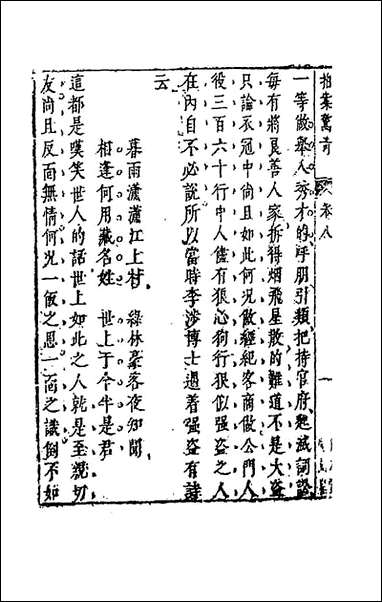 拍案驚奇 卷八 一
一等做舉人秀才的呼朋引類把持官府起滅詞訟
每有將良善人家拆得烟飛星散的難道不是大盜
只論衣冠中尚且如此何況做經紀客商做公門人
役三百六十行中人儘有狼心狗行狠似强盜之人
在內自不必說所以當時李涉博士遇着强盜有詩
云
暮雨瀟瀟江上村 綠林豪客夜知聞
相逢何用藏名姓 世上于今半是君
這都是嘆笑世人的話世上如此之人就是至親切
友尚且反面無情何況一飯之恩一面之識倒不如